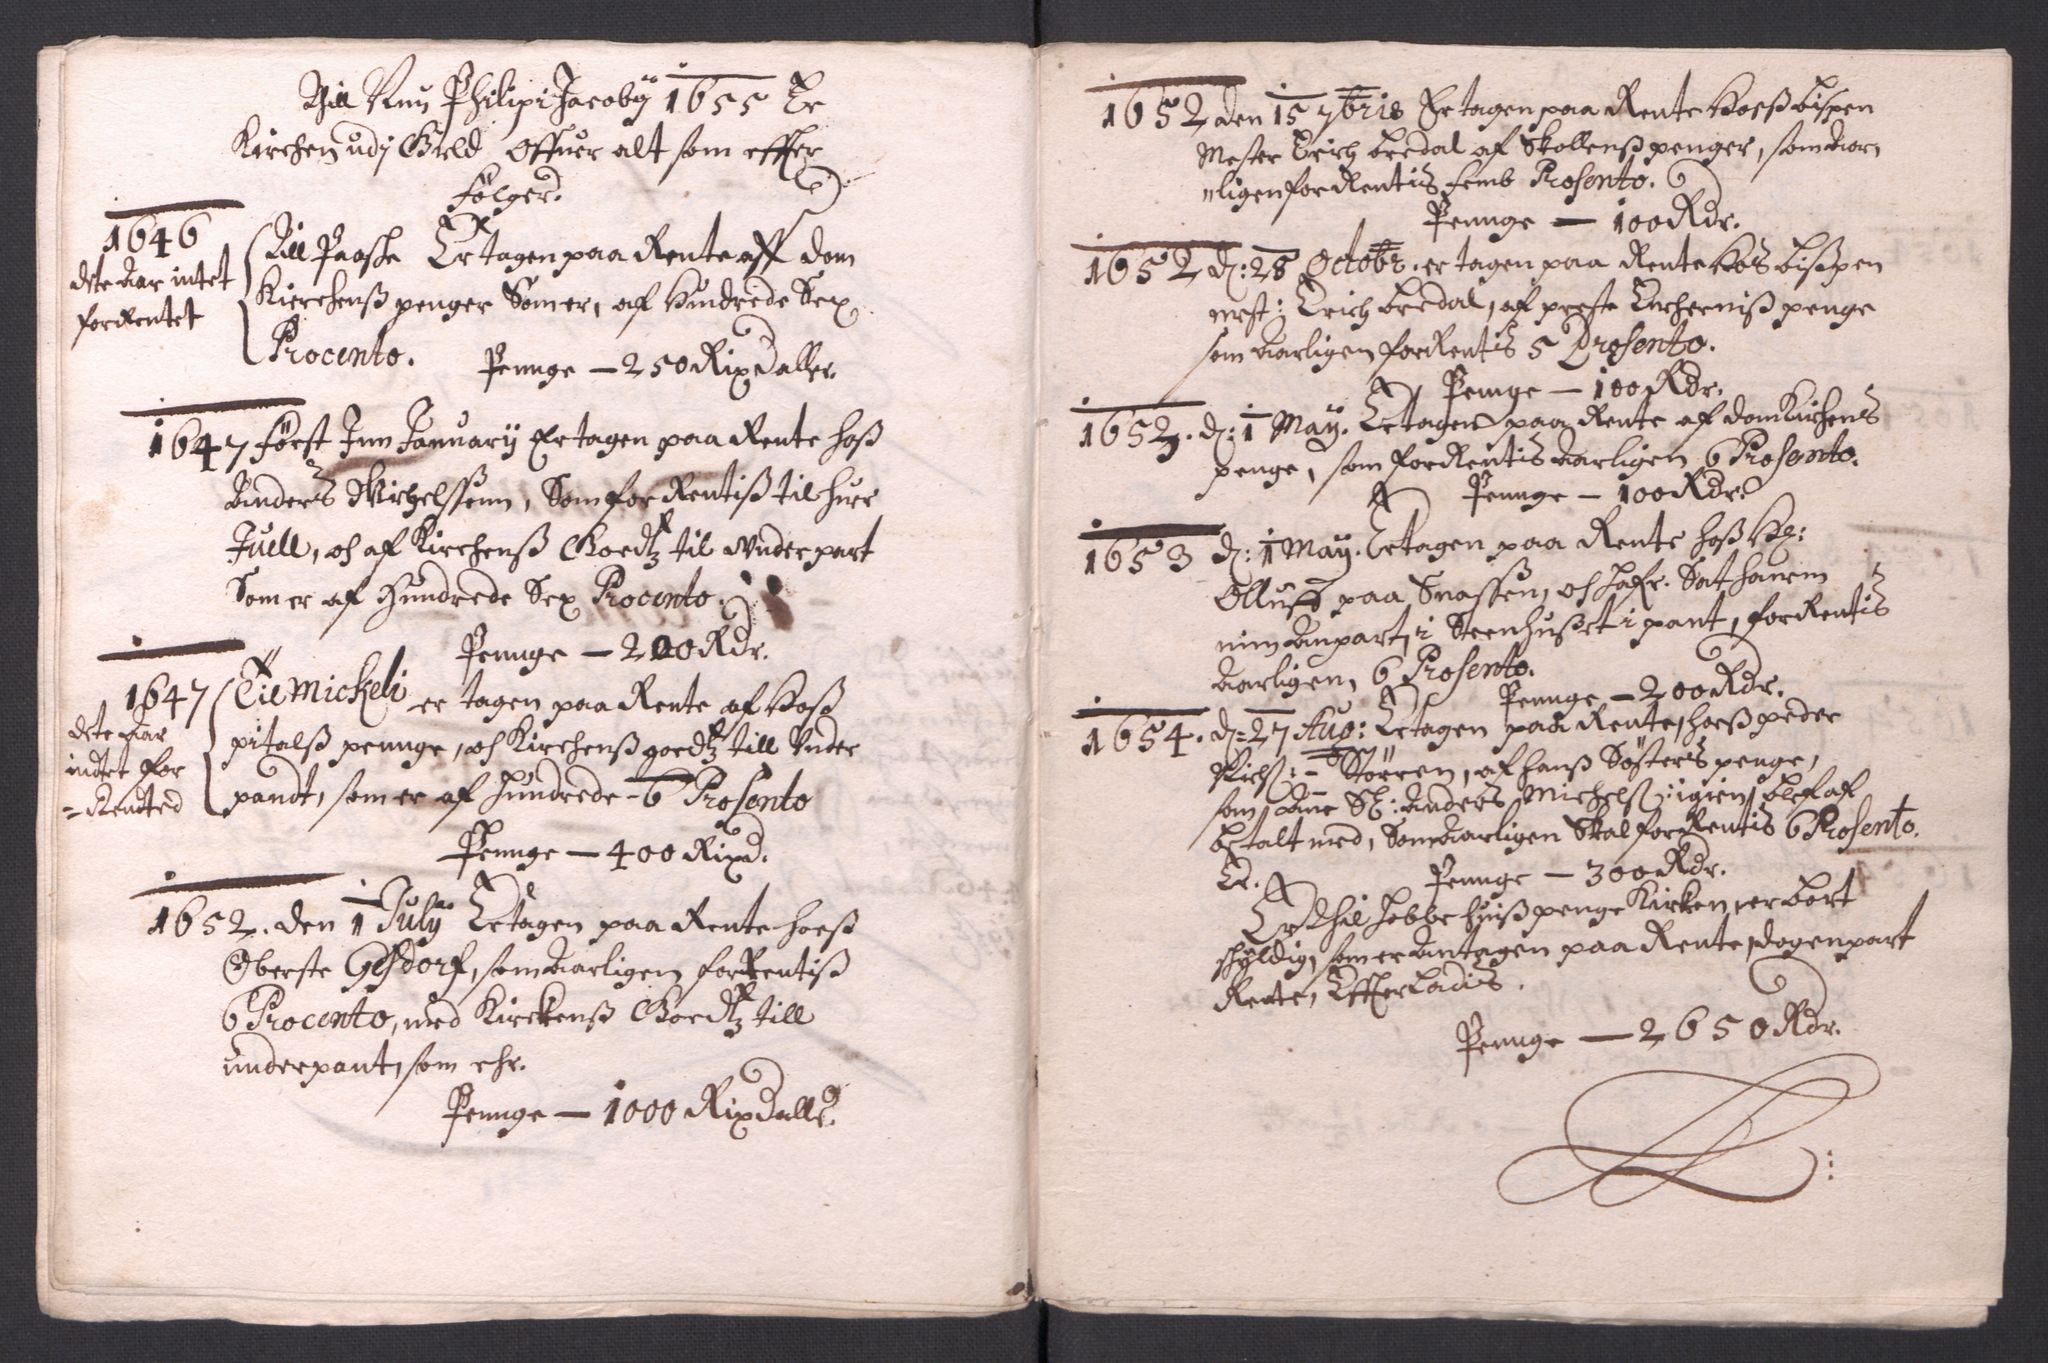 Till Anu Philipi Jacobÿ 1655 Er
Kirchen udj Gield Offuer alt som effter
følger.
1646
dete aar intet
forRentet
Till Paaske Er tagen paa Rente aff dom
Kierchenß penger Som er, af Hundrede Sex
Procento.
Pennge — 250 Rixdaller.
1647 først Inn Januarÿ Er tagen paa Rente hoß
Anders Michelssenn, Som forRentiß til huer
Juell, och af Kirchenß Goedtz til Underpart
Som er af Hundrede Sex Procento.
Pennge — 200 Rdr.
1647
dete Aar
indtet for
=Rendted
Til Mickeli er tagen paa Rente af Hoß
pitalß pennge, och Kirchenß goedtz till Under
pandt, som er af Hundrede 6 Prosento
Pennge — 400 Rixd.
1652. den 1 Julÿ Er tagen paa Rente hoeß
Oberste Gersdorf, som Aarligen forRentiß
6 Procento, med Kirckenß Goedtz till
underpant, som ehr.
Pennge — 1000 Rixdalle.
1652 den 15 7bris Er tagen paa Rente Hoeß bispen
Mester Erich bredal af Skollenß penger, som Aar,
"ligen forRentis femb Prosento.
Pennge — 100 Rdr.
1652 d: 28 Octobr. er tagen paa Rente Hos bißpen
mest: Erich bredal, af preste Encherniß penge
som Aarligen forRentis 5 Prosento.
Pennge — 100 Rdr.
1652. d: 1 Maÿ. Er tagen paa Rente af domKirchens
penge, som forRentis Aarligen 6 Prosento.
Pennge — 100 Rdr.
1653 d: 1 Maÿ. Er tagen paa Rente hoß Hr:
Olluff paa Snaßen, och hafr. Sat hanem
min Anpart, i Steenhußet i pant, forRentis
Aarligen, 6 Prosento.
Pennge — 200 Rdr.
1654. d: 27 Aug: Er tagen paa Rente, hoeß peder
Nielß: Størren, af hanß Søsters penge,
som Sl: Anders Michelß: igien blef af
betalt med, Som Aarligen Skal forRentis 6 Prosento.
Er.
Pennge — 300 Rdr.
Er Thil penge Kirken, er bort
schyldig, som er Antagen paa Rente, dogenpart
Rente, Efterladis.
Pennge — 2650 Rdr.